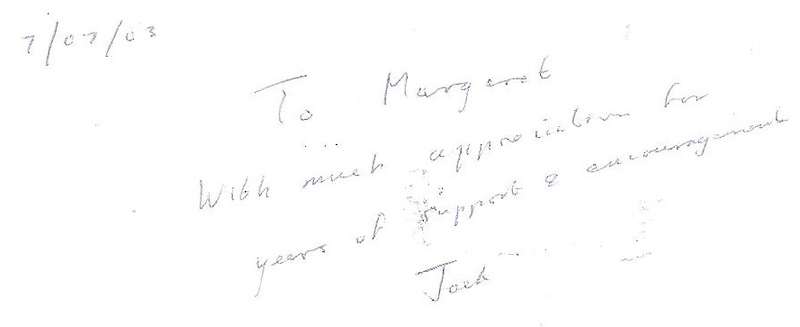 7/07/03
To Margaret
With much appreciation for
years of support & encouragement
Jock